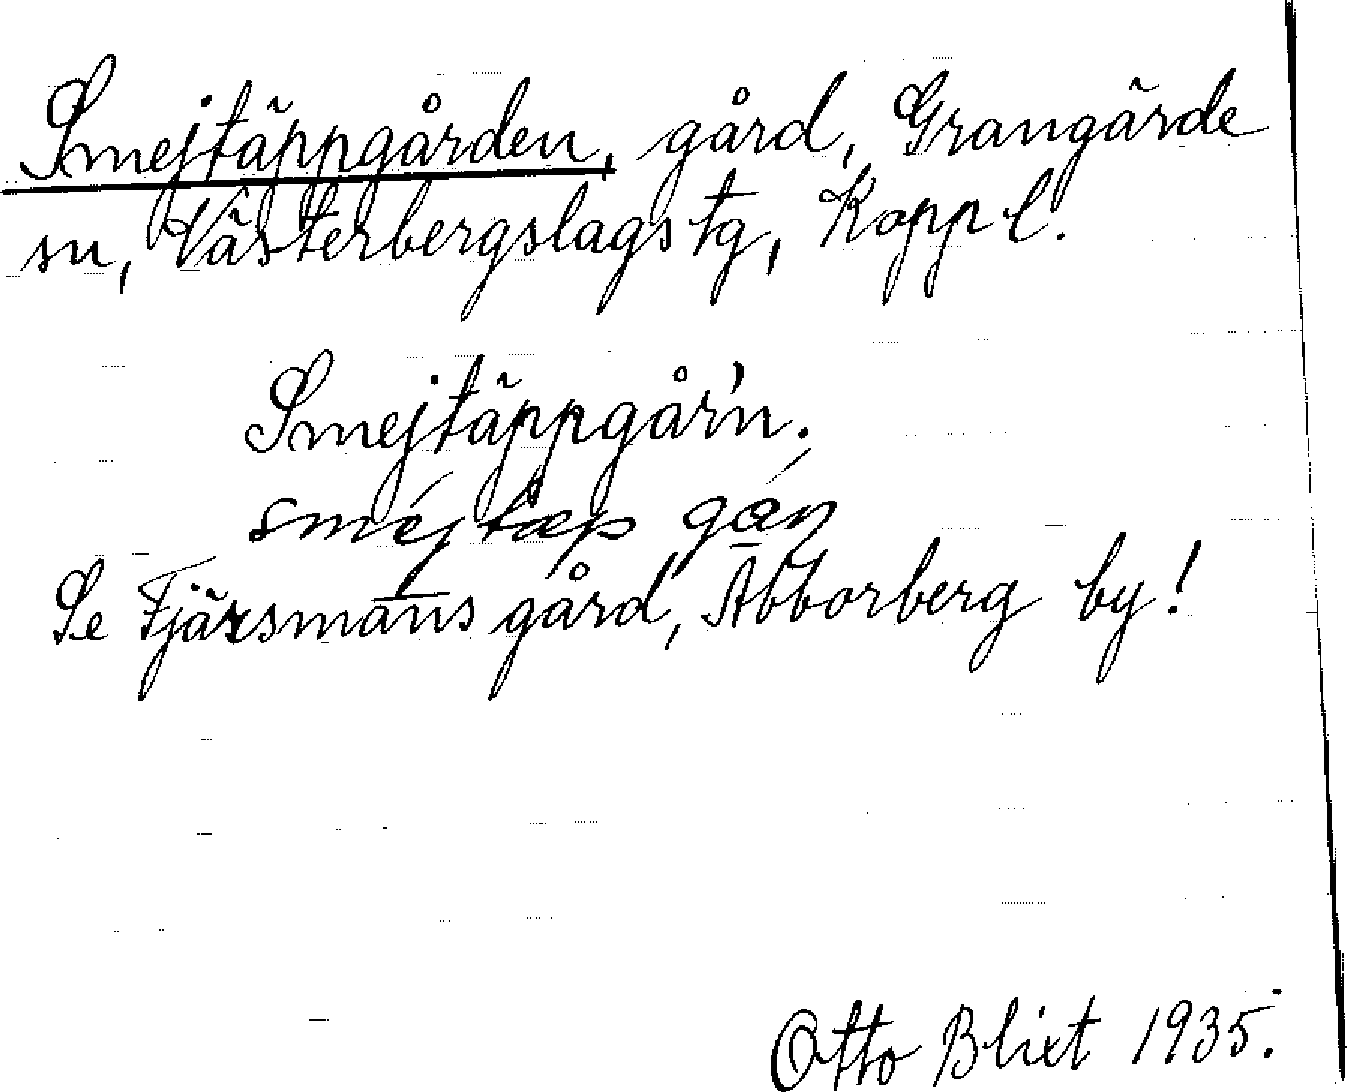 Smejtäppgården, gård, Grangärde
sn, Västerbergslags tg, Kopp l.
Smejtäppgår'n.
Se Fjärsmans gård, Abborberg by!
Otto Blixt 1935.